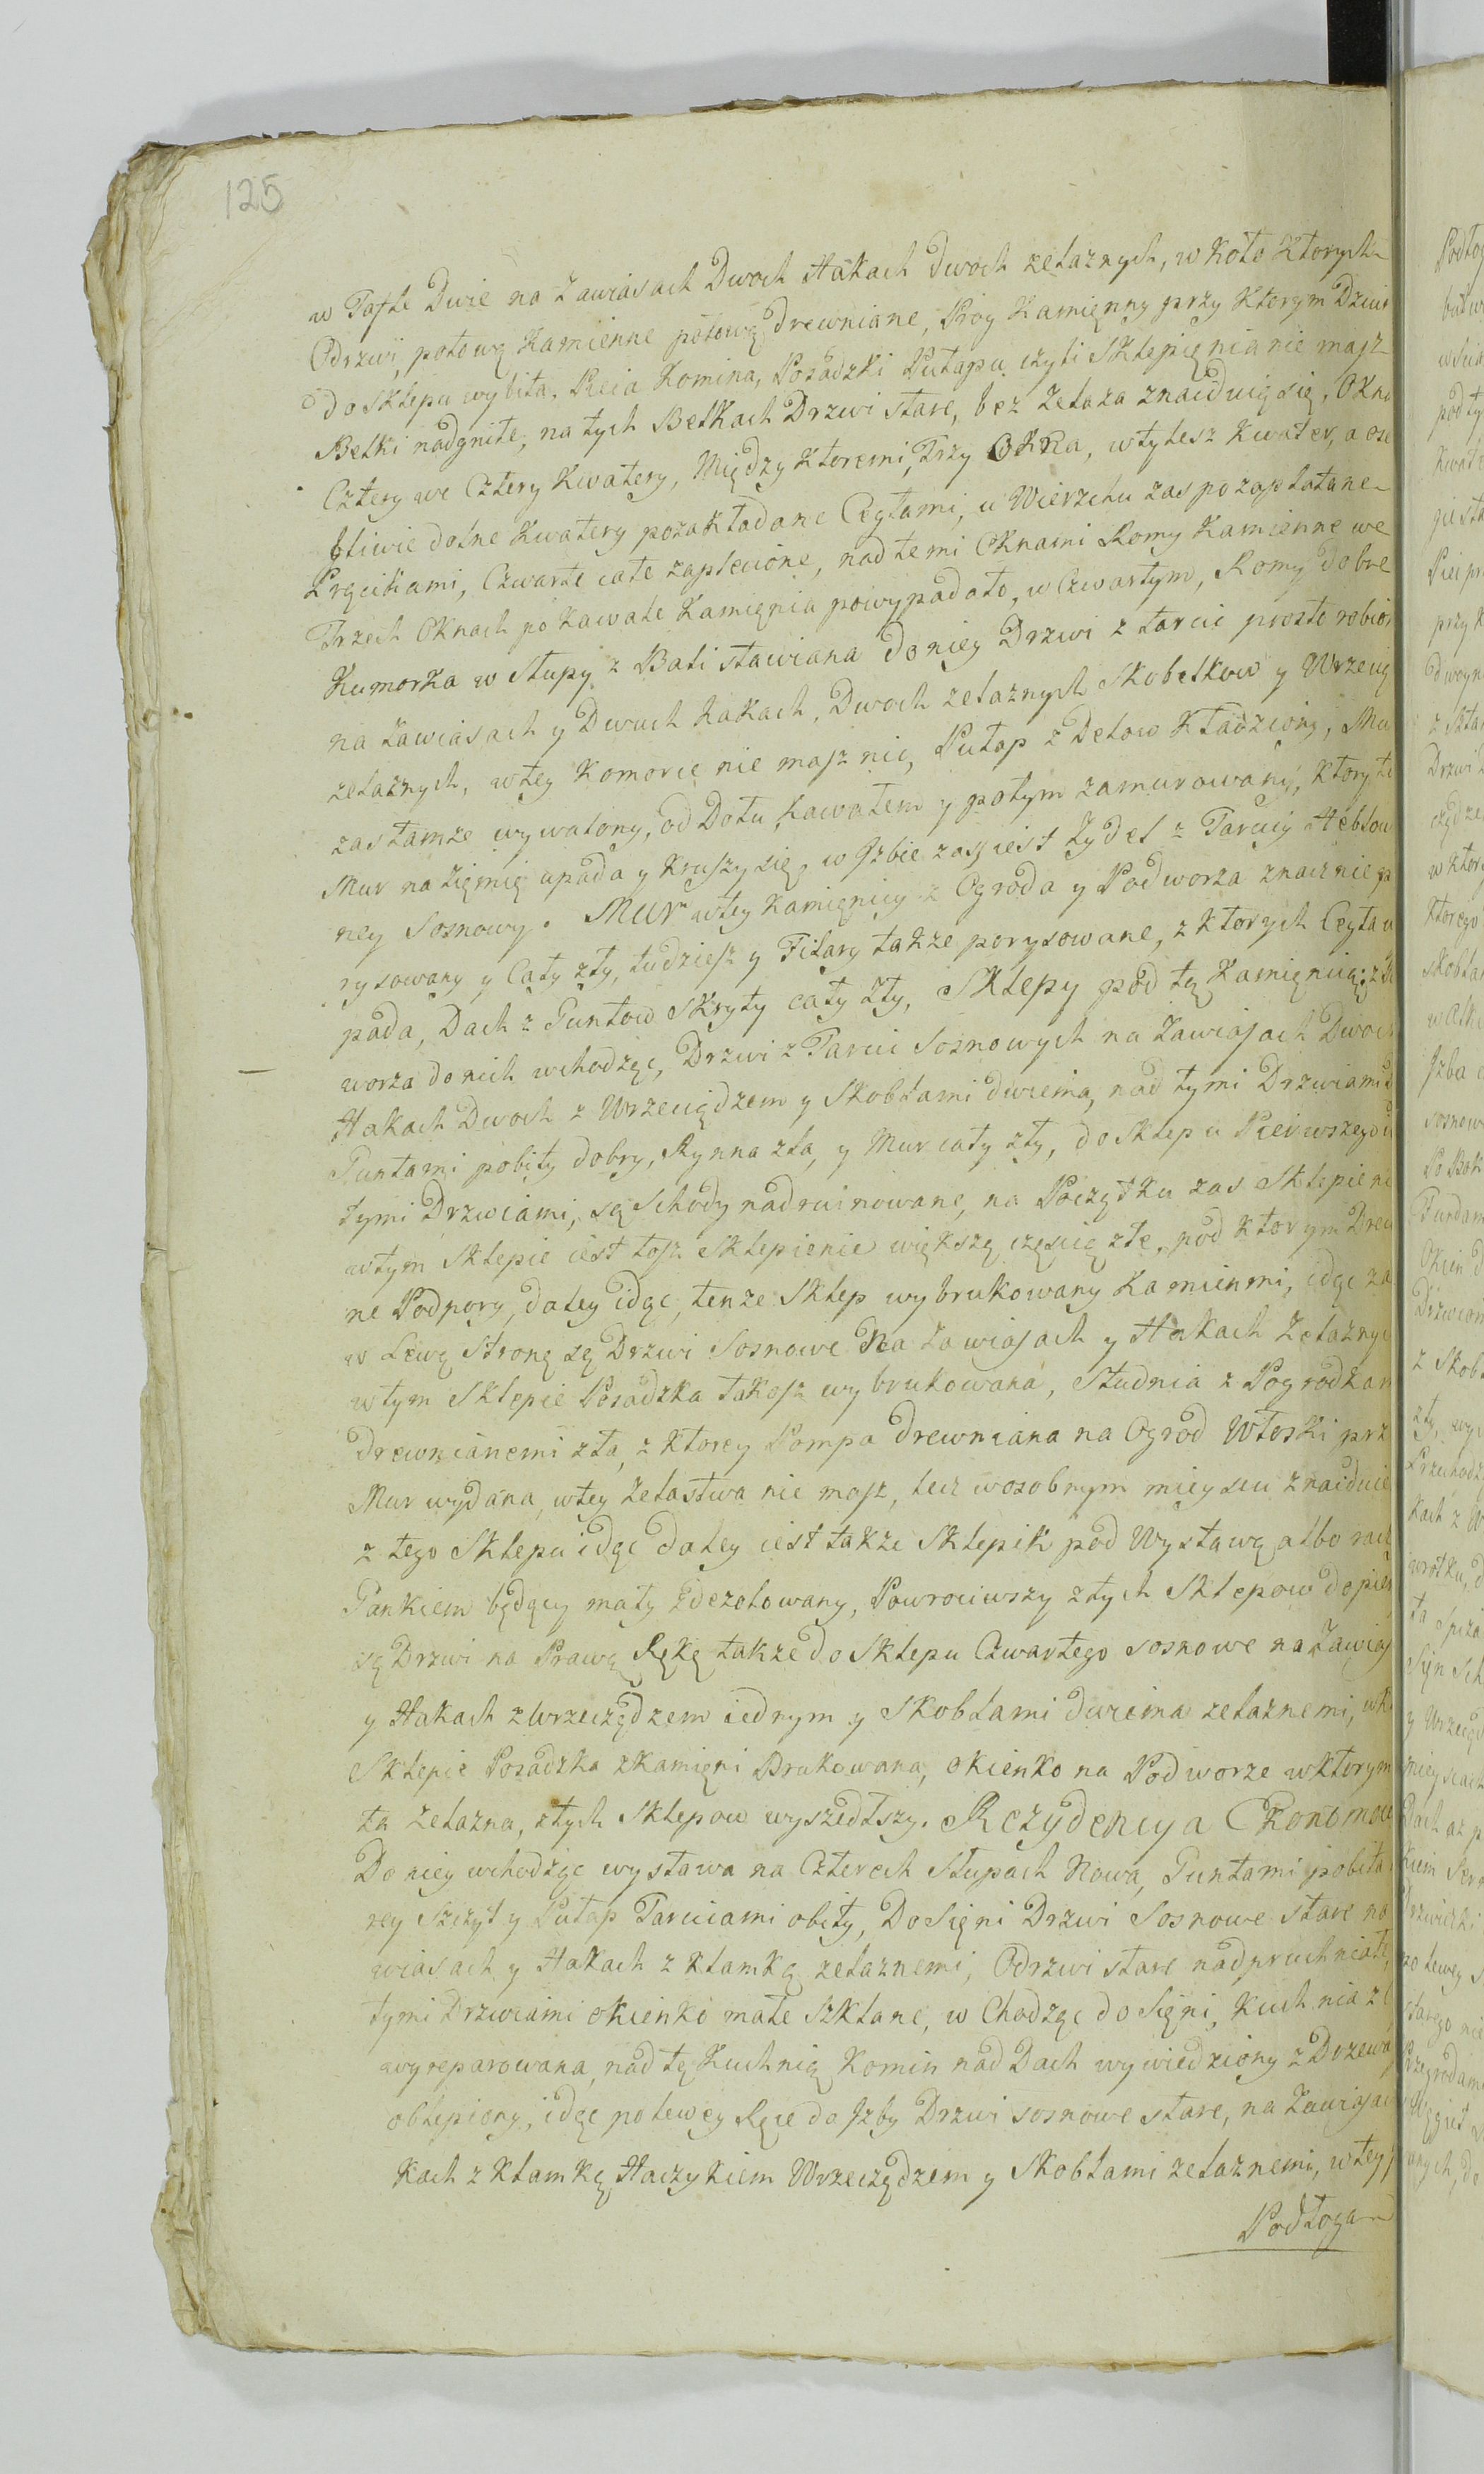 125
w Tafle Dwie na Zawiasach Dwoch Hakach dwoch zelaznych, w koło Ktorych
Odrzwi, połowę Kamienne połowę drewniane, Prog Kamięnny przy Kterym Dziur
do Sklepu wybita, Pieca Komina, Posadzki Pułapu czyli Sklepięnia nie masz
Belki nadgniłe, na tych Belkach Drzwi stare, bez Zelaza znaiduią się, Okna
Cztery we Cztery Kwatery, Między Ktoremi, Trzy Okna, w tylesz Kwater, a
dolne Kwatery pozakładane Cegłami, u Wierzchu zas pozaplatane
Pręcikami, Czwarte całe zaplecione, nad temi Oknami Romy Kamienne we
Trzech Oknach po Kawale Kamięnia powypadało, w Czwartym, Romy dobre
Kumorka w Słupy z Bali stawiana do niey Drzwi z tarcic prosto robio
na Zawiasach y Dwuch hakach, Dwoch zelaznych Skobelkow y Wrzecią
zelaznych, w tey Komorce nie masz nic, Pułap z Delow Kładziony, Mu
zas tamze wywalony, od Dołu, kawałem y potym zamurowany, Ktory te
Mur na Zięmię upada y kruszy się, w Jzbie zas iest Zydel z Tarcicy Heblow
ney Sosnowy. Mur w tey Kamięnicy z Ogroda y Podworza znacznie po
rysowany y Cały zły, tudziesz y Filary także porysowane, z Ktorych Cegła w
pada, Dach z Guntow Skryty cały Zły, Sklepy pod tę Kamięnicą z
worza do nich wchodząc, Drzwi z Tarcic Sosnowych na Zawiasach Dwoch
Hakach Dwoch z Wrzeciądzem y Skoblami dwiema, nad tymi Drzwiami
Guntami pobity dobry, Rynna zła, y Mur cały zły, do Sklepu Pierwszego
tymi Drzwiami, są Schody nadruinowane, na Początku zas Sklepieni
w tym Sklepie iest tosz Sklepienie większą częscią złe, pod Ktorym Drew
ne Podpory, daley idąc, tenze Sklep wybrukowany Kamieniami, idąc za
w Lewą Stronę są Drzwi Sosnowe Na Zawiasach y Hakach Zelaznyc
w tym Sklepie Posadzka takosz wybrukowana, Studnia z Pogrodkam
Drewnianemi zła, z Ktorey Pompa drewniana na Ogrod Włoski prz
Mur wydana, w tey Zelastwa nie masz, lecz w osobnym mieyscu znaiduie
z tego Sklepu idąc daley iest takze Sklepik pod Wystawą albo rac
Gankiem będący mały zdezolowany, Powrociwszy z tych Sklepow do pier
są Drzwi na Prawą Rękę takze do Sklepu Czwartego sosnowe na Zawias
y Hakach z Wrzeczędzem iednym y Skoblami dwiema zelaznemi, w K
Sklepie Posadzka z kamięni Brukowana, okienko na Podworze w Ktorym
ta Zelazna, z tych Sklepow wyszedłszy. Rezydencya Ekonomow
Do niey wchodząc wystawa na Czterech Słupach Nowa, Guntami pobita
rey Szczyt y Pułap Tarcicami obity, Do Sięni Drzwi Sosnowe stare na
wiasach y Hakach z klamką zelaznemi, Odrzwi stare nadpruchniałe,
tymi Drzwiami okienko małe Szklane, w Chodząc do Sięni, Kuchnia z
wyreparowana, nad tę Kuchnią Komin nad Dach wywiedziony z Drzewa
oblepiony, idąc po lewey Ręce do Jzby Drzwi sosnowe stare, na Zawiasac
kach z Klamką Haczykiem Wrzeczędzem y Skoblami zelaznemi, w tey
Podłoga